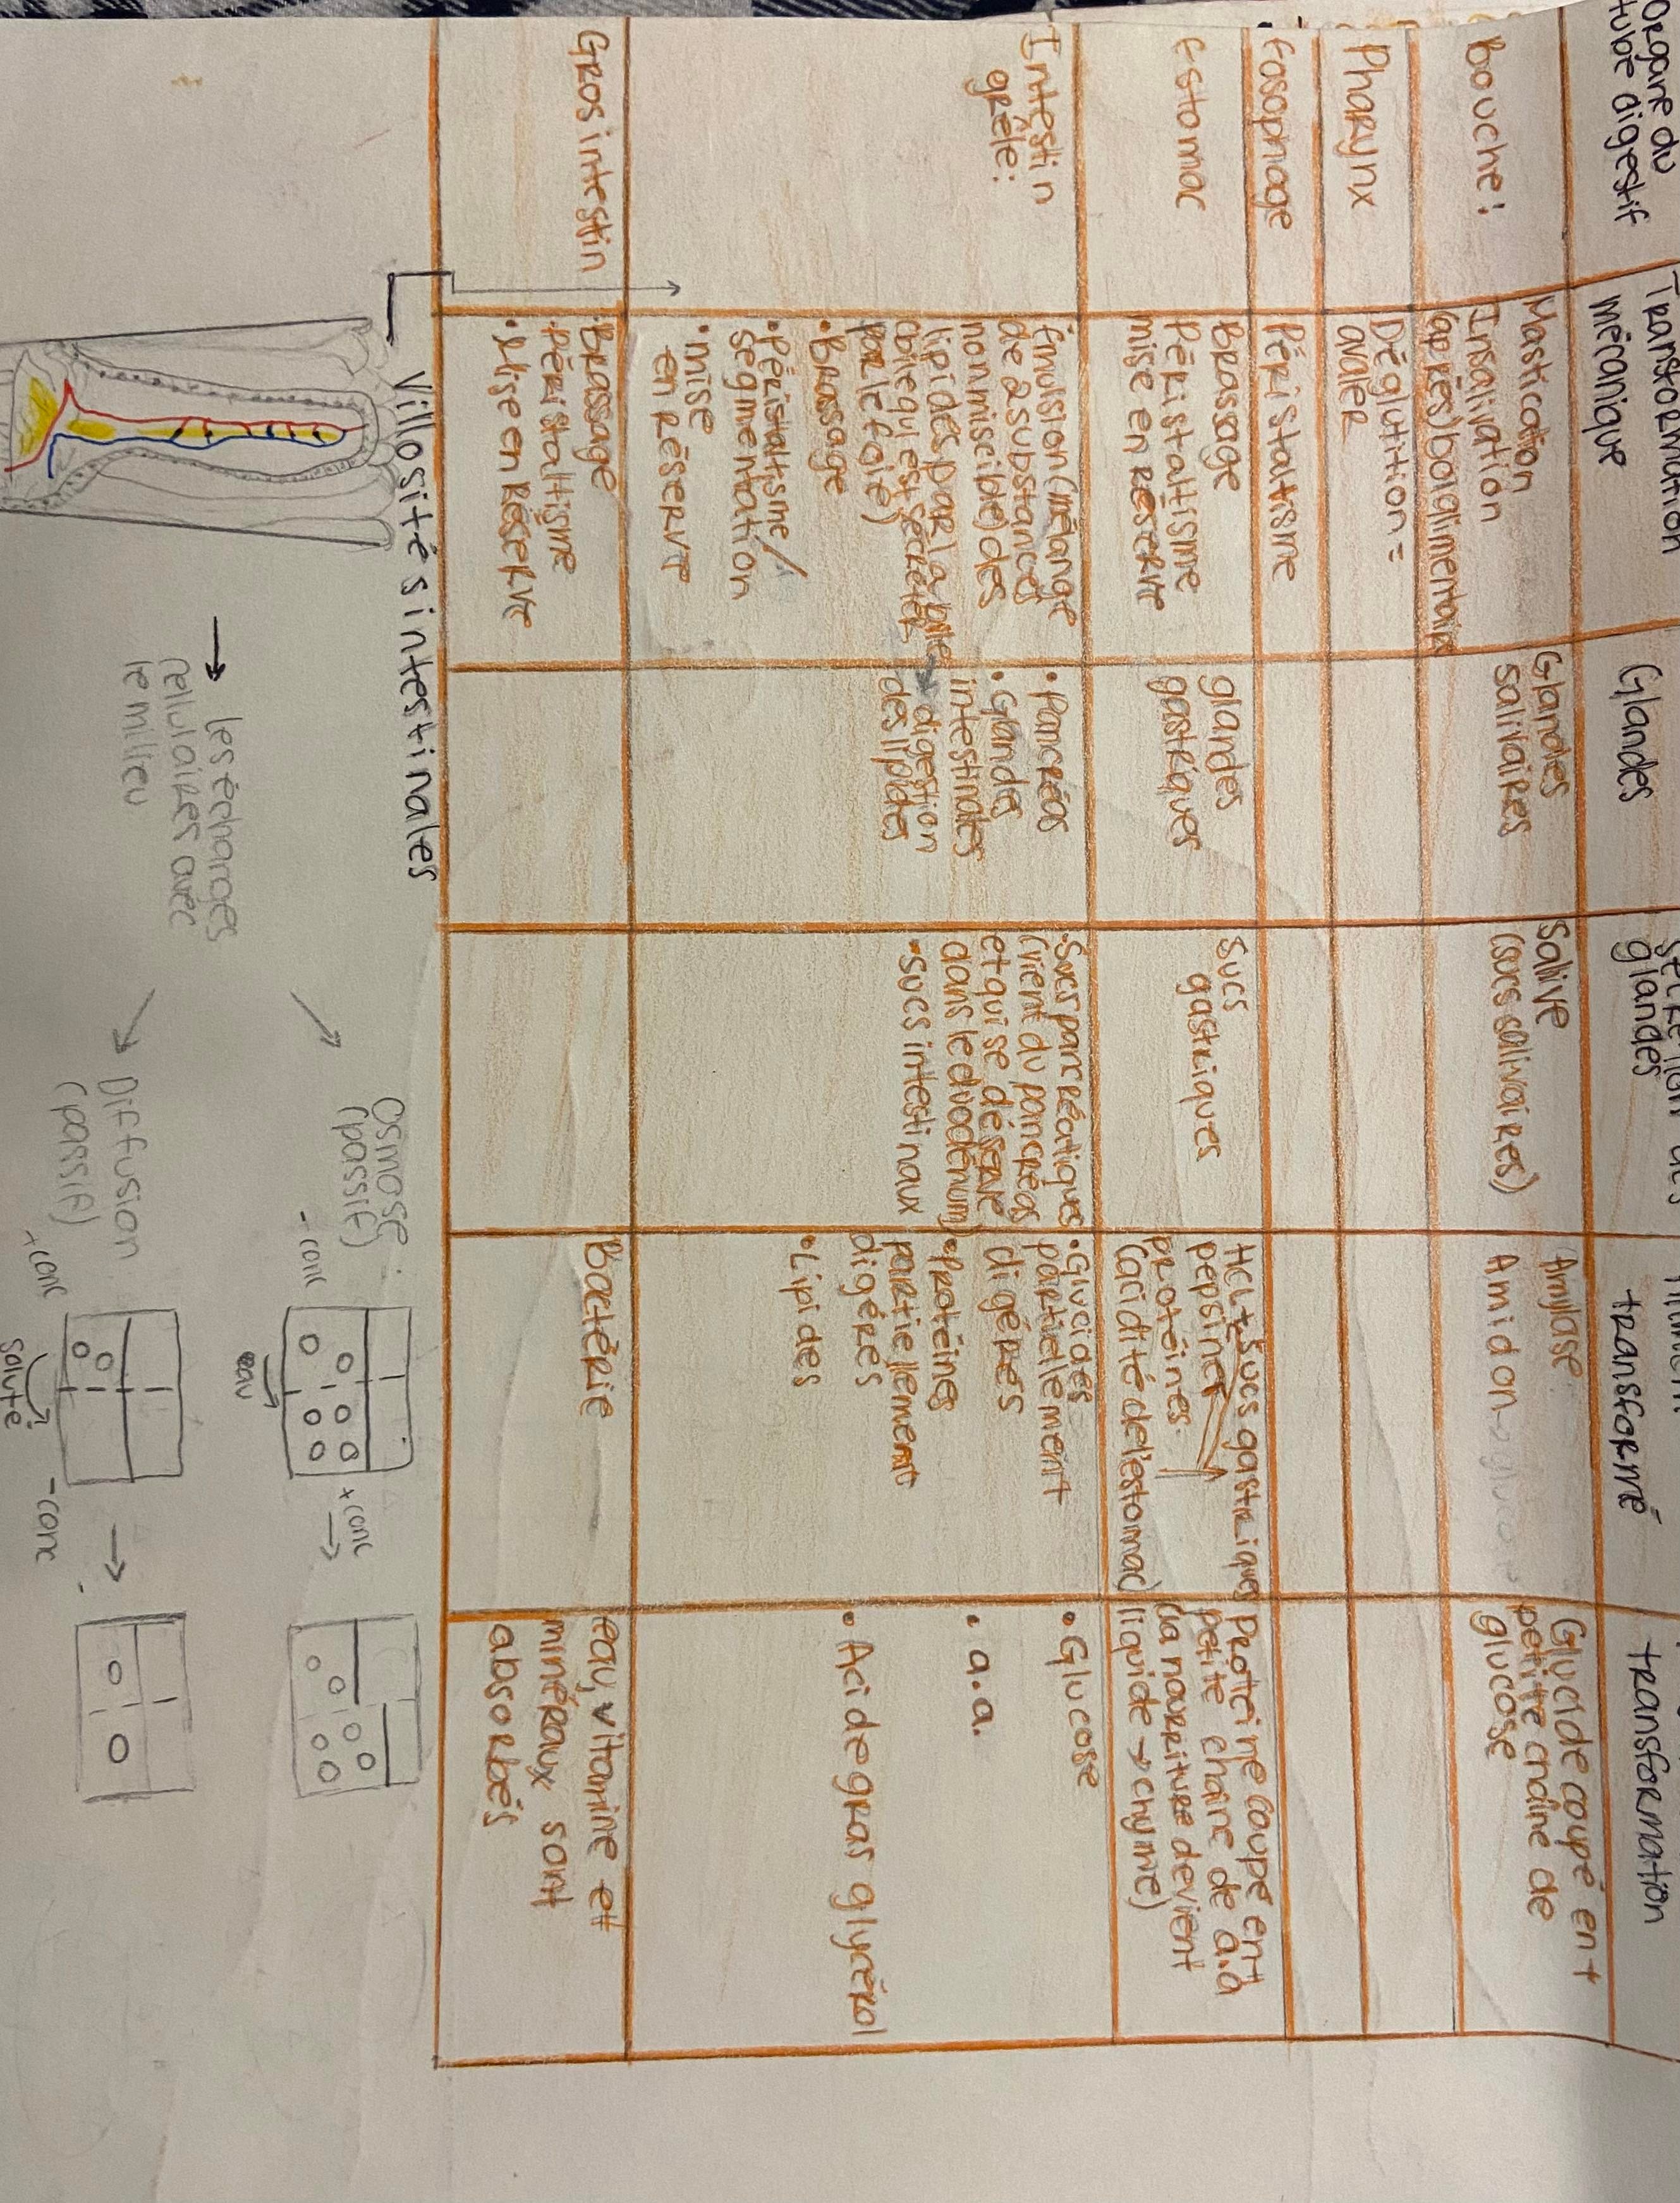 Organe du
tube digestif
Transformation
mécanique
Glandes
glandes
transformé
transformation
Bouche:
Mastication
Insalivation
(après) bol alimentaire
Glandes
salivaires
Salive
(sucs salivaires)
Amylase
Amidon
Glucide coupé en +
petite chaîne de
glucose
Pharynx
Déglutition =
avaler
Eosophage
Péristaltisme
Estomac
Brassage
Péristaltisme
mise en réserve
glandes
gastriques
Sucs
gastriques
HCl + Sucs gastriques
pepsine
protéines
(acidité de l'estomac)
Protéine coupé en +
petite chaîne de a.a
(la nourriture devient
liquide → chyme)
Intestin
grêle:
Émulsion (mélange
de 2 substances
non miscible) des
lipides par la bile
qui est sécréter
par le foie)
• Brassage
• Péristaltisme/
segmentation
• mise
en réserve
• Pancréas
• Glandes
intestinales
→ digestion
des lipides
• Sucs pancréatiques
(vient du pancréas
et qui se déserve
dans le duodénum)
• Sucs intestinaux
• Glucides
partiellement
digérés
• Protéines
partiellement
digérés
• Lipides
• Glucose
• a.a.
• Acide gras glycérol
Gros intestin
• Brassage
• Péristaltisme
• Mise en réserve
Bactérie
eau, vitamine et
minéraux sont
absorbés
Villosités intestinales
→ les échanges
cellulaires avec
le milieu
Osmose:
(passif)
- conc
eau
+ conc
→
Diffusion
(passif)
+ conc
soluté
- conc
→